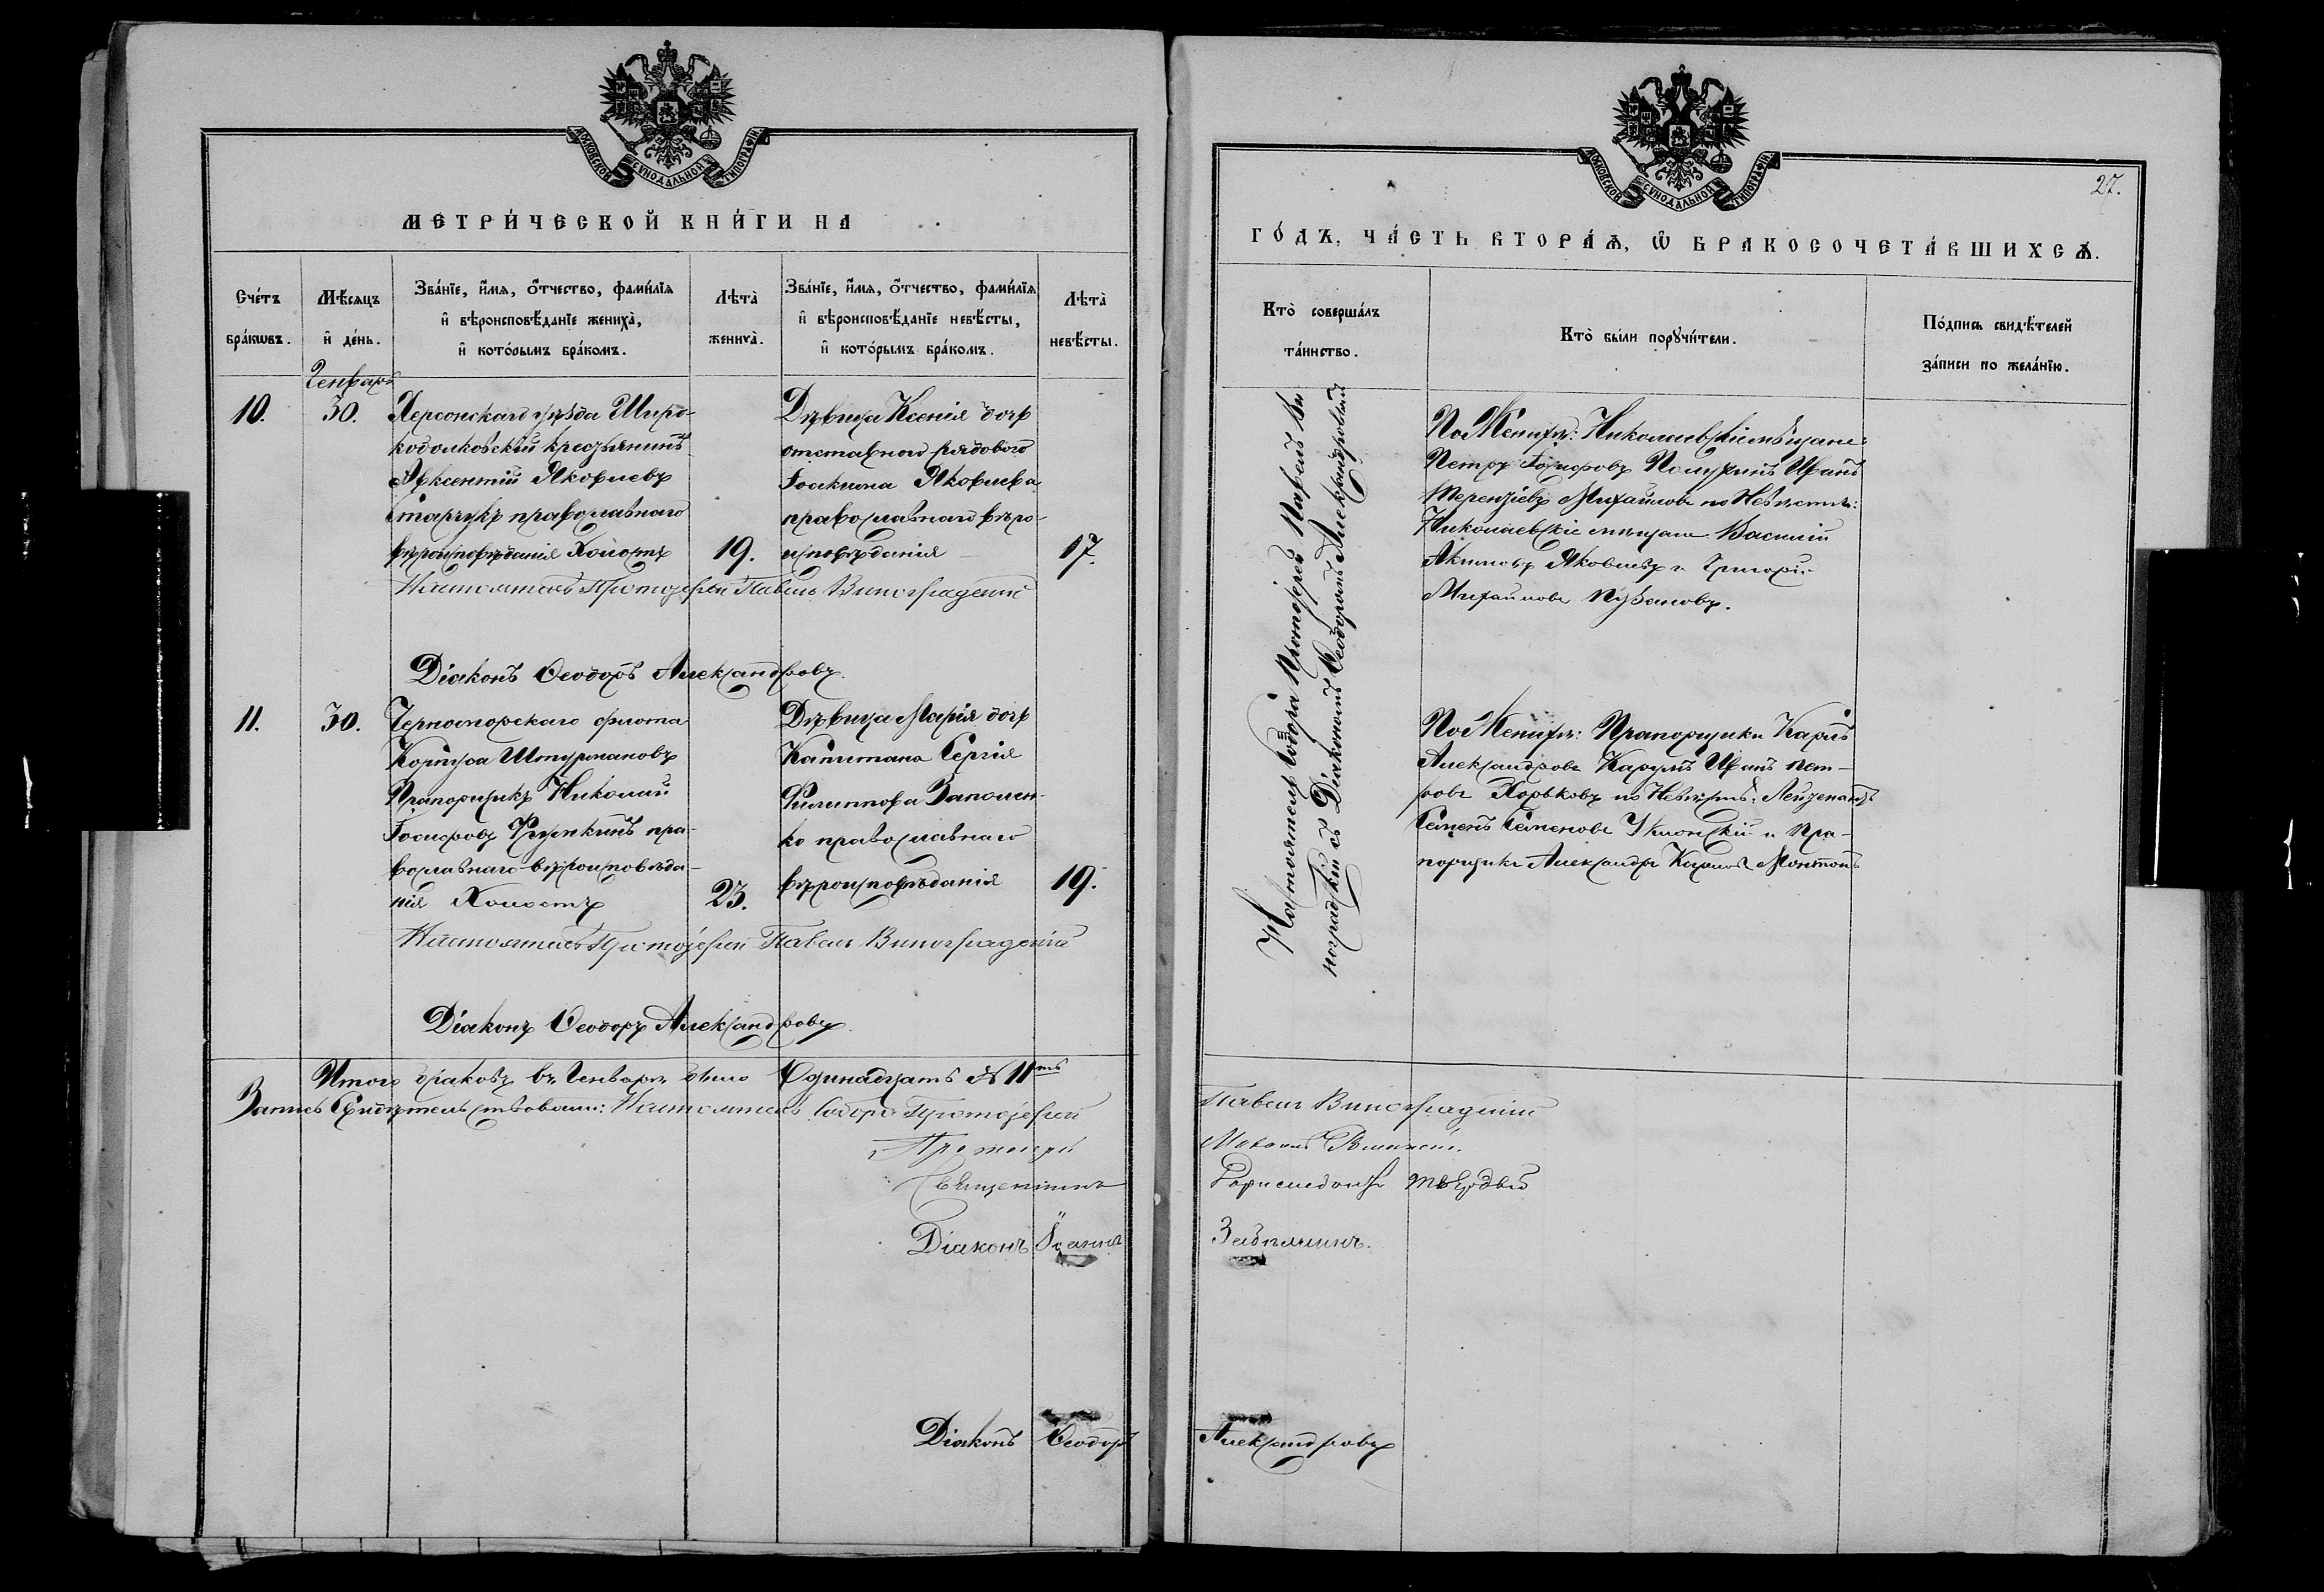 МОСКОВСКОЙ СѴНОДАЛЬНОЙ ТИПОГРАФІИ.
МЕТРИ́ЧЕСКОЙ КНИ́ГИ НА
Сче́тъ бра́кωвъ.
Мѣ́сяцъ и де́нь.
Зва́нїе, и́мя, о́тчество, фами́лїя и вѣроисповѣ́данїе жениха̀, и кото́рымъ бра́комъ.
Лѣта̀ жениха̀.
Зва́нїе, и́мя, о́тчество, фами́лїя и вѣроисповѣ́данїе невѣ́сты, и кото́рымъ бра́комъ.
Лѣта̀ невѣ́сты.
Генварь
10.
30.
Херсонскаго уѣзда Широ-
кобалковскій крестьянинъ
Авксентій Яковлевъ
православнаго
вѣроисповѣданія Холостъ
19.
Дѣвица Ксенія дочь
отставного рядового
Іоакима Яковлева
православнаго вѣро-
исповѣданія
17.
Настоятель Протоіерей Павелъ Виноградскій
Діаконъ Ѳеодоръ Александровъ.
11.
30.
Черноморскаго флота
Корпуса Штурмановъ
Прапорщикъ Николай
Іосифовъ пра-
вославнаго вѣроисповѣда-
нія Холостъ
23.
Дѣвица Марія дочь
Капитана Сергія
Филиппова Заполен-
ко православнаго
вѣроисповѣданія
19.
Настоятель Протоіерей Павелъ Виноградскій
Діаконъ Ѳеодоръ Александровъ
Итого браковъ въ Генварѣ было Одинадцать № 11ть
Запись Свидѣтельствовали: Настоятель Собора Протоіерей
Протоіерей
Священникъ
Діаконъ Іоаннъ
Діаконъ Ѳеодоръ
МОСКОВСКОЙ СѴНОДАЛЬНОЙ ТИПОГРАФІИ.
27.
ГО́ДЪ, ЧА́СТЬ ВТОРА́Ѧ, Ѽ БРАКОСОЧЕТА́ВШИХСѦ.
Кто̀ соверша́лъ та́инство.
Кто̀ бы́ли порꙋчи́тели.
По́дпись свидѣ́телей за́писи по жела́нїю.
Настоятель Собора Протоіерей Павелъ Ви-
ноградскій съ Діакономъ Ѳеодоромъ Александровымъ
По Женихѣ: Николаевскіе мѣщане:
Петръ Іосифовъ Иванъ
Терентіевъ Михайловъ по Невѣстѣ:
Николаевскіе мѣщане Василій
Акимовъ Яковлевъ и Григорій
Михайловъ
По Женихѣ: Прапорщики Карлъ
Александровъ Иванъ Пет-
ровъ Хорьковъ по Невѣстѣ: Лейтенантъ
Семенъ Семеновъ и Пра-
порщикъ Александръ Карловъ
Павелъ Виноградскій
Твердый
Александровъ